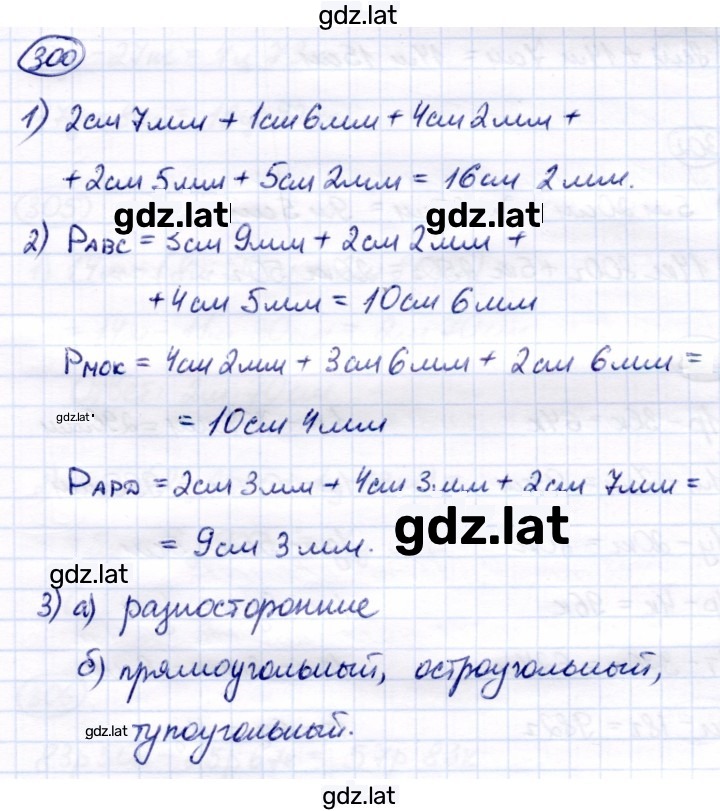 gdz.lat
300
1) 2см 7мм + 1см 6мм + 4см 2мм +
+ 2см 5мм + 5см 2мм = 16см 2мм.
gdz.lat gdz.lat
2) PABC = 3см 9мм + 2см 2мм +
+ 4см 5мм = 10см 6мм
PМОК = 4см 2мм + 3см 6мм + 2см 6мм =
gdz.lat = 10см 4мм
PAPD = 2см 3мм + 4см 3мм + 2см 7мм =
= 9см 3мм. gdz.lat
gdz.lat
3) а) разносторонние
б) прямоугольный, остроугольный,
gdz.lat тупоугольный.
gdz.lat